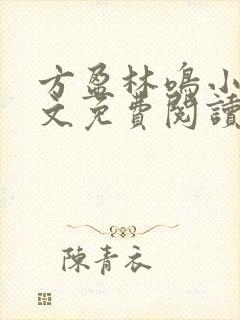 方盈林鳴小
文免費閱讀
陳青衣